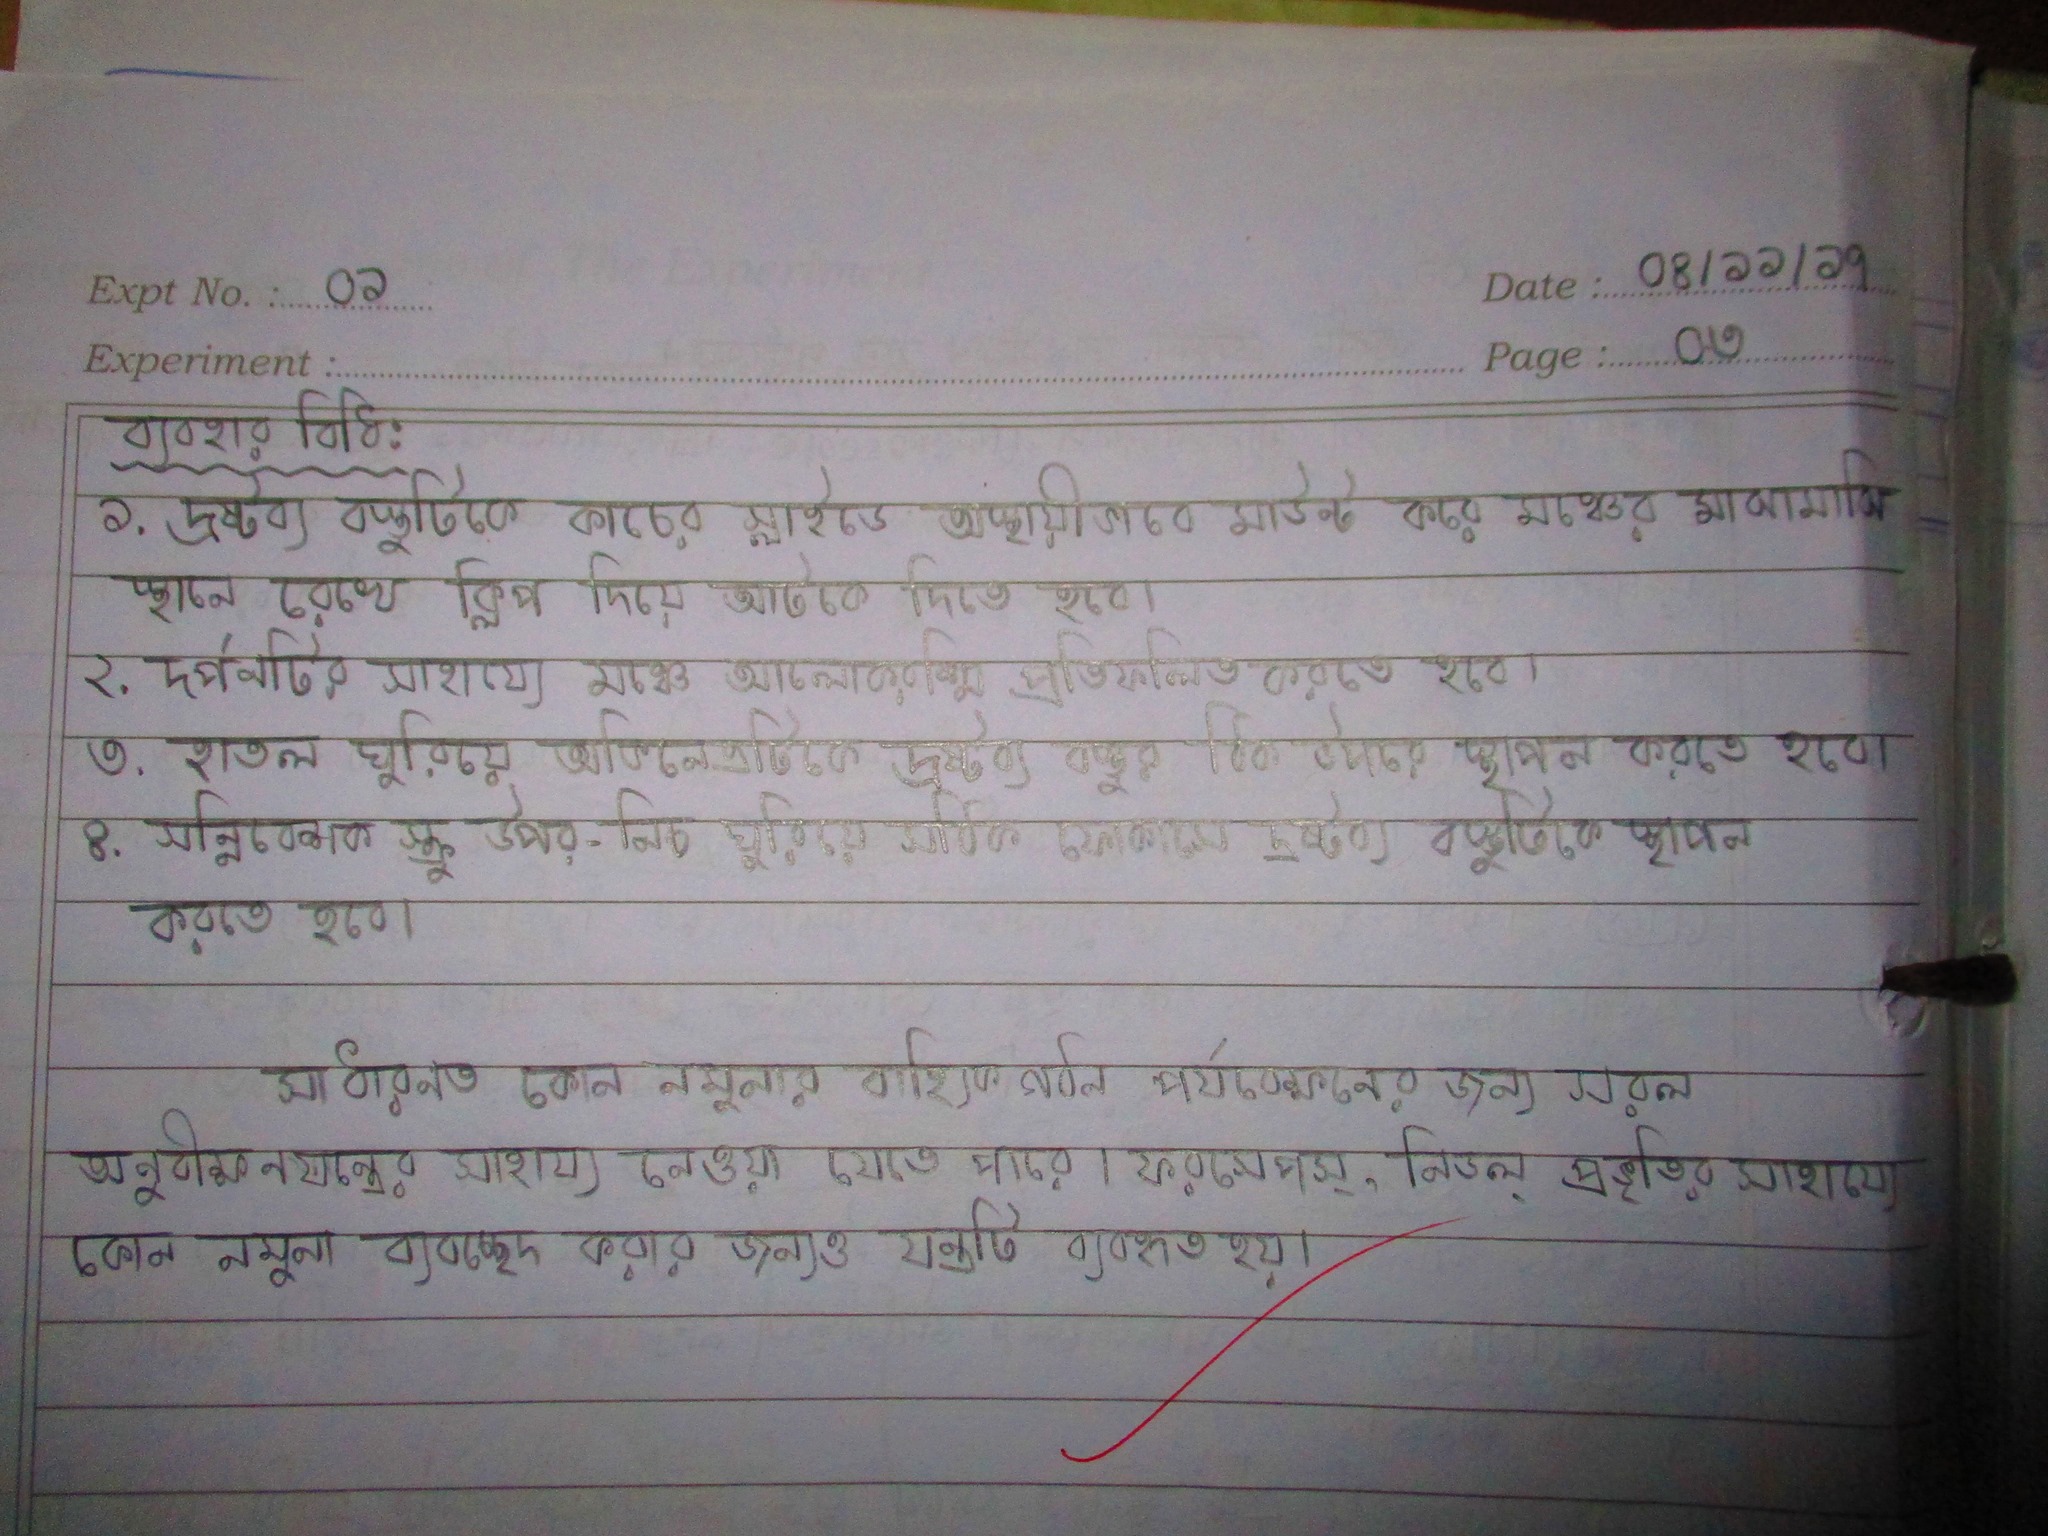 Expt No. : ০১
Date : ০৪/১১/১৭
Experiment :
Page : ০৩
ব্যবহার বিধি:
১. দ্রষ্টব্য বস্তুটিকে কাচের স্লাইডে অস্থায়ীভাবে মাউন্ট করে মঞ্চের মাঝামাঝি
স্থানে রেখে ক্লিপ দিয়ে আটকে দিতে হবে।
২. দর্পনটির সাহায্যে মঞ্চে আলোকরশ্মি প্রতিফলিত করতে হবে।
৩. হাতল ঘুরিয়ে অভিনেত্রটিকে দ্রষ্টব্য বস্তুর ঠিক উপরে স্থাপন করতে হবে।
৪. সন্নিবেশক স্ক্রু উপর-নিচ ঘুরিয়ে সঠিক ফোকাসে দ্রষ্টব্য বস্তুটিকে স্থাপন
করতে হবে।
সাধারনত কোন নমুনার বাহ্যিক গঠন পর্যবেক্ষনের জন্য সরল
অনুবীক্ষনযন্ত্রের সাহায্য নেওয়া যেতে পারে। ফরসেপস্, নিডল্ প্রভৃতির সাহায্যে
কোন নমুনা ব্যবচ্ছেদ করার জন্যও যন্ত্রটি ব্যবহৃত হয়।